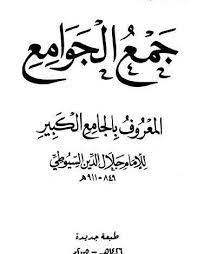 جمع الجوامع
المعروف بالجامع الكبير
للإمام جلال الدين السيوطي
٨٤٩-٩١١هـ
طبعة جديدة
١٤٢٦هـ-٢٠٠٥م